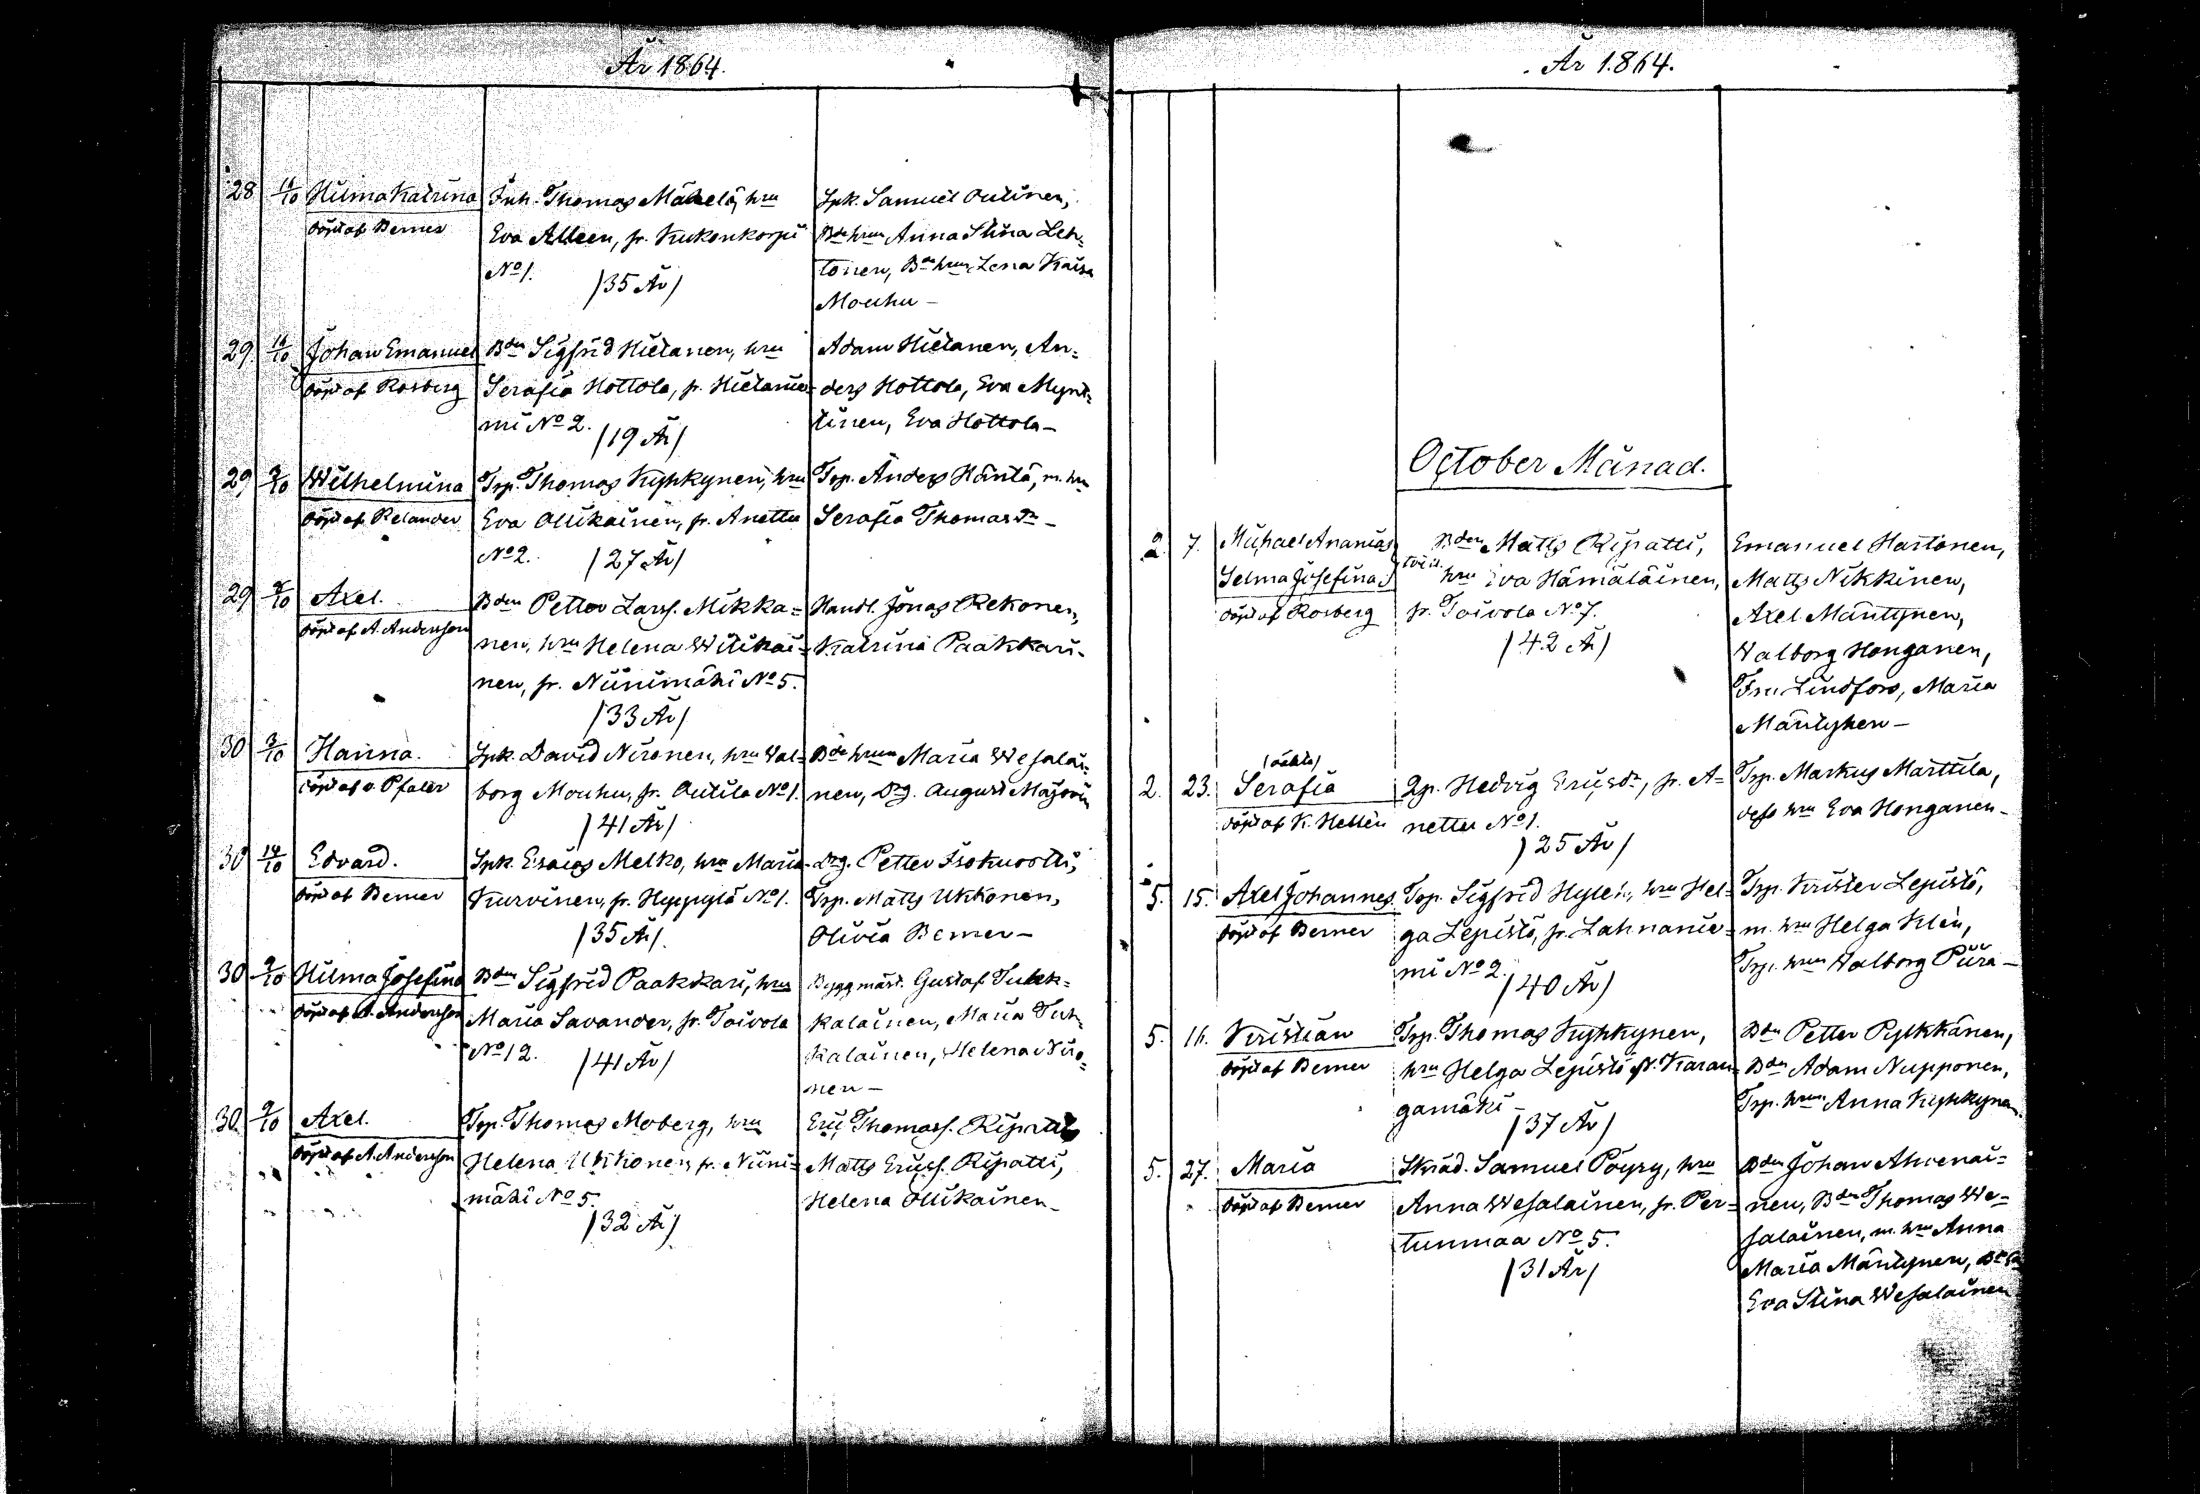 År 1864.
28 16/10 Hilma Katrina
döpt af Berner
Inh. Thomas Mäkelä, hru
Eva Alleen, fr. Kukonkorpi
No 1.
/35 År/
Spk. Samuel Outinen,
Bde hrun Anna Stina Leh-
tonen, Bde hrun Lena Kaisa
Mouhu –
29 16/10 Johan Emanuel
döpt af Rosberg
Bden Sigfrid Hietanen, hru
Serafia Hottola, fr. Hietanie-
mi No 2.
/19 År/
Adam Hietanen, An-
ders Hottola, Eva Mynt-
tinen, Eva Hottola –
29 Wilhelmina
döpt af Relander
Trp. Thomas Kyhkynen, hru
Eva Ollikainen, fr. Anettu
No 2. /27 År/
Trp. Anders Häntä, m. hru
Serafia Thomasdr –
29 Axel.
döpt af A. Andersson
Bden Petter Larss. Mikka-
nen, hru Helena Wilikai-
nen, fr. Niinimäki No 5.
/33 År/
Handl. Jonas Rekonen,
Katrina Paakkari.
30 3/10 Hanna.
döpt af v. Pfaler
Spk. David Nironen, hru Val-
borg Mouhu, fr. Outila No 1.
/41 År/
Bde hrun Maria Wesalai-
nen, Drg. August Majorin
30 14/10 Edvard.
döpt af Berner
Spk. Esaias Melko, hru Maria
Kurvinen, fr. Hyppylä No 1.
/35 År/.
Drg. Petter Isokuortti,
Trp. Matts Ukkonen,
Olivia Berner –
30 9/10 Hilma Josefina
döpt af A. Andersson
Bden Sigfrid Paakkari, hru
Maria Savander, fr. Toivola
No 12. /41 År/
Byggmäst. Gustaf Tuhk-
kalainen, Maria Tuh-
kalainen, Helena Niro-
nen –
30. 9/10 Axel.
döpt af A. Andersson
Trp. Thomas Moberg, hru
Helena Ukkonen, fr. Niini-
mäki No 5.
/32 År/
Eric Thomass. Ripatti,
Matts Ericss. Ripatti,
Helena Ollikainen –
År 1864.
October Månad.
2. 7. Michael Ananias
Selma Josefina
tvill.
döpt af Rosberg
Bden Matts Ripatti,
hru Eva Hämäläinen,
fr. Toivola No 7.
/42 År/
Emanuel Hartonen,
Matts Nikkinen,
Axel Mäntynen,
Valborg Honganen,
Fru Lindfors, Maria
Mäntynen –
2. 23. /oäkta/
Serafia
döpt af K. Hellén
Qp. Hedvig Ericsdr, fr. A-
nettu No 1.
/25 År/
Trp. Markus Marttila,
dess hru Eva Honganen –
5. 15. Axel Johannes
döpt af Berner
Trp. Sigfrid Hylen, hru Hel-
ga Lepistö, fr. Lahnanie-
mi No 2.
/40 År/
Trp. Krister Lepistö,
m. hru Helga Klén,
Trp. hrun Valborg Piira –
5. 16. Kristian
döpt af Berner
Trp. Thomas Kyhkynen,
hru Helga Lepistö fr. Karan-
gamäki –
/37 År/
Bdn Petter Pylkkänen,
Bdn Adam Nupponen,
Trp. hrun Anna Kyhkynen
5. 27. Maria
döpt af Berner
Skräd. Samuel Pöyry, hru
Anna Wesalainen, fr. Per-
tunmaa No 5.
/31 År/
Bden Johan Ahvenai-
nen, Bden Thomas We-
salainen, m. hru Anna
Maria Mäntynen,
Eva Stina Wesalainen